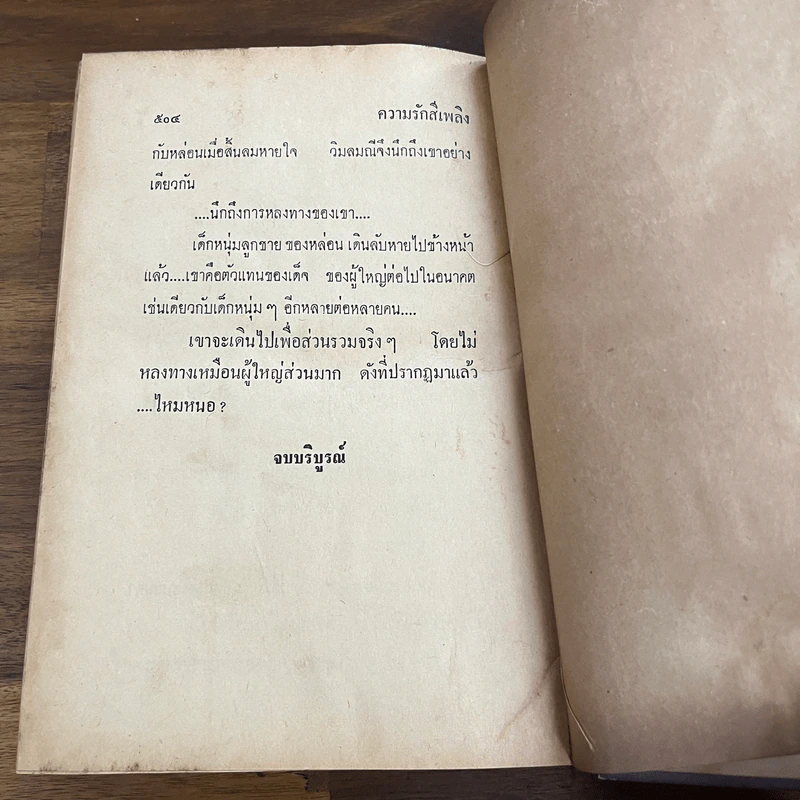 ๕๐๔ ความรักสีเพลิง
กับหล่อนเมื่อสิ้นลมหายใจ วิมลมณีจึงนึกถึงเขาอย่าง
เดียวกัน
....นึกถึงการหลงทางของเขา....
เด็กหนุ่มลูกชาย ของหล่อน เดินลับหายไปข้างหน้า
แล้ว....เขาคือตัวแทนของเด็จ ของผู้ใหญ่ต่อไปในอนาคต
เช่นเดียวกับเด็กหนุ่ม ๆ อีกหลายต่อหลายคน....
เขาจะเดินไปเพื่อส่วนรวมจริง ๆ โดยไม่
หลงทางเหมือนผู้ใหญ่ส่วนมาก ดังที่ปรากฏมาแล้ว
....ไหมหนอ ?
จบบริบูรณ์